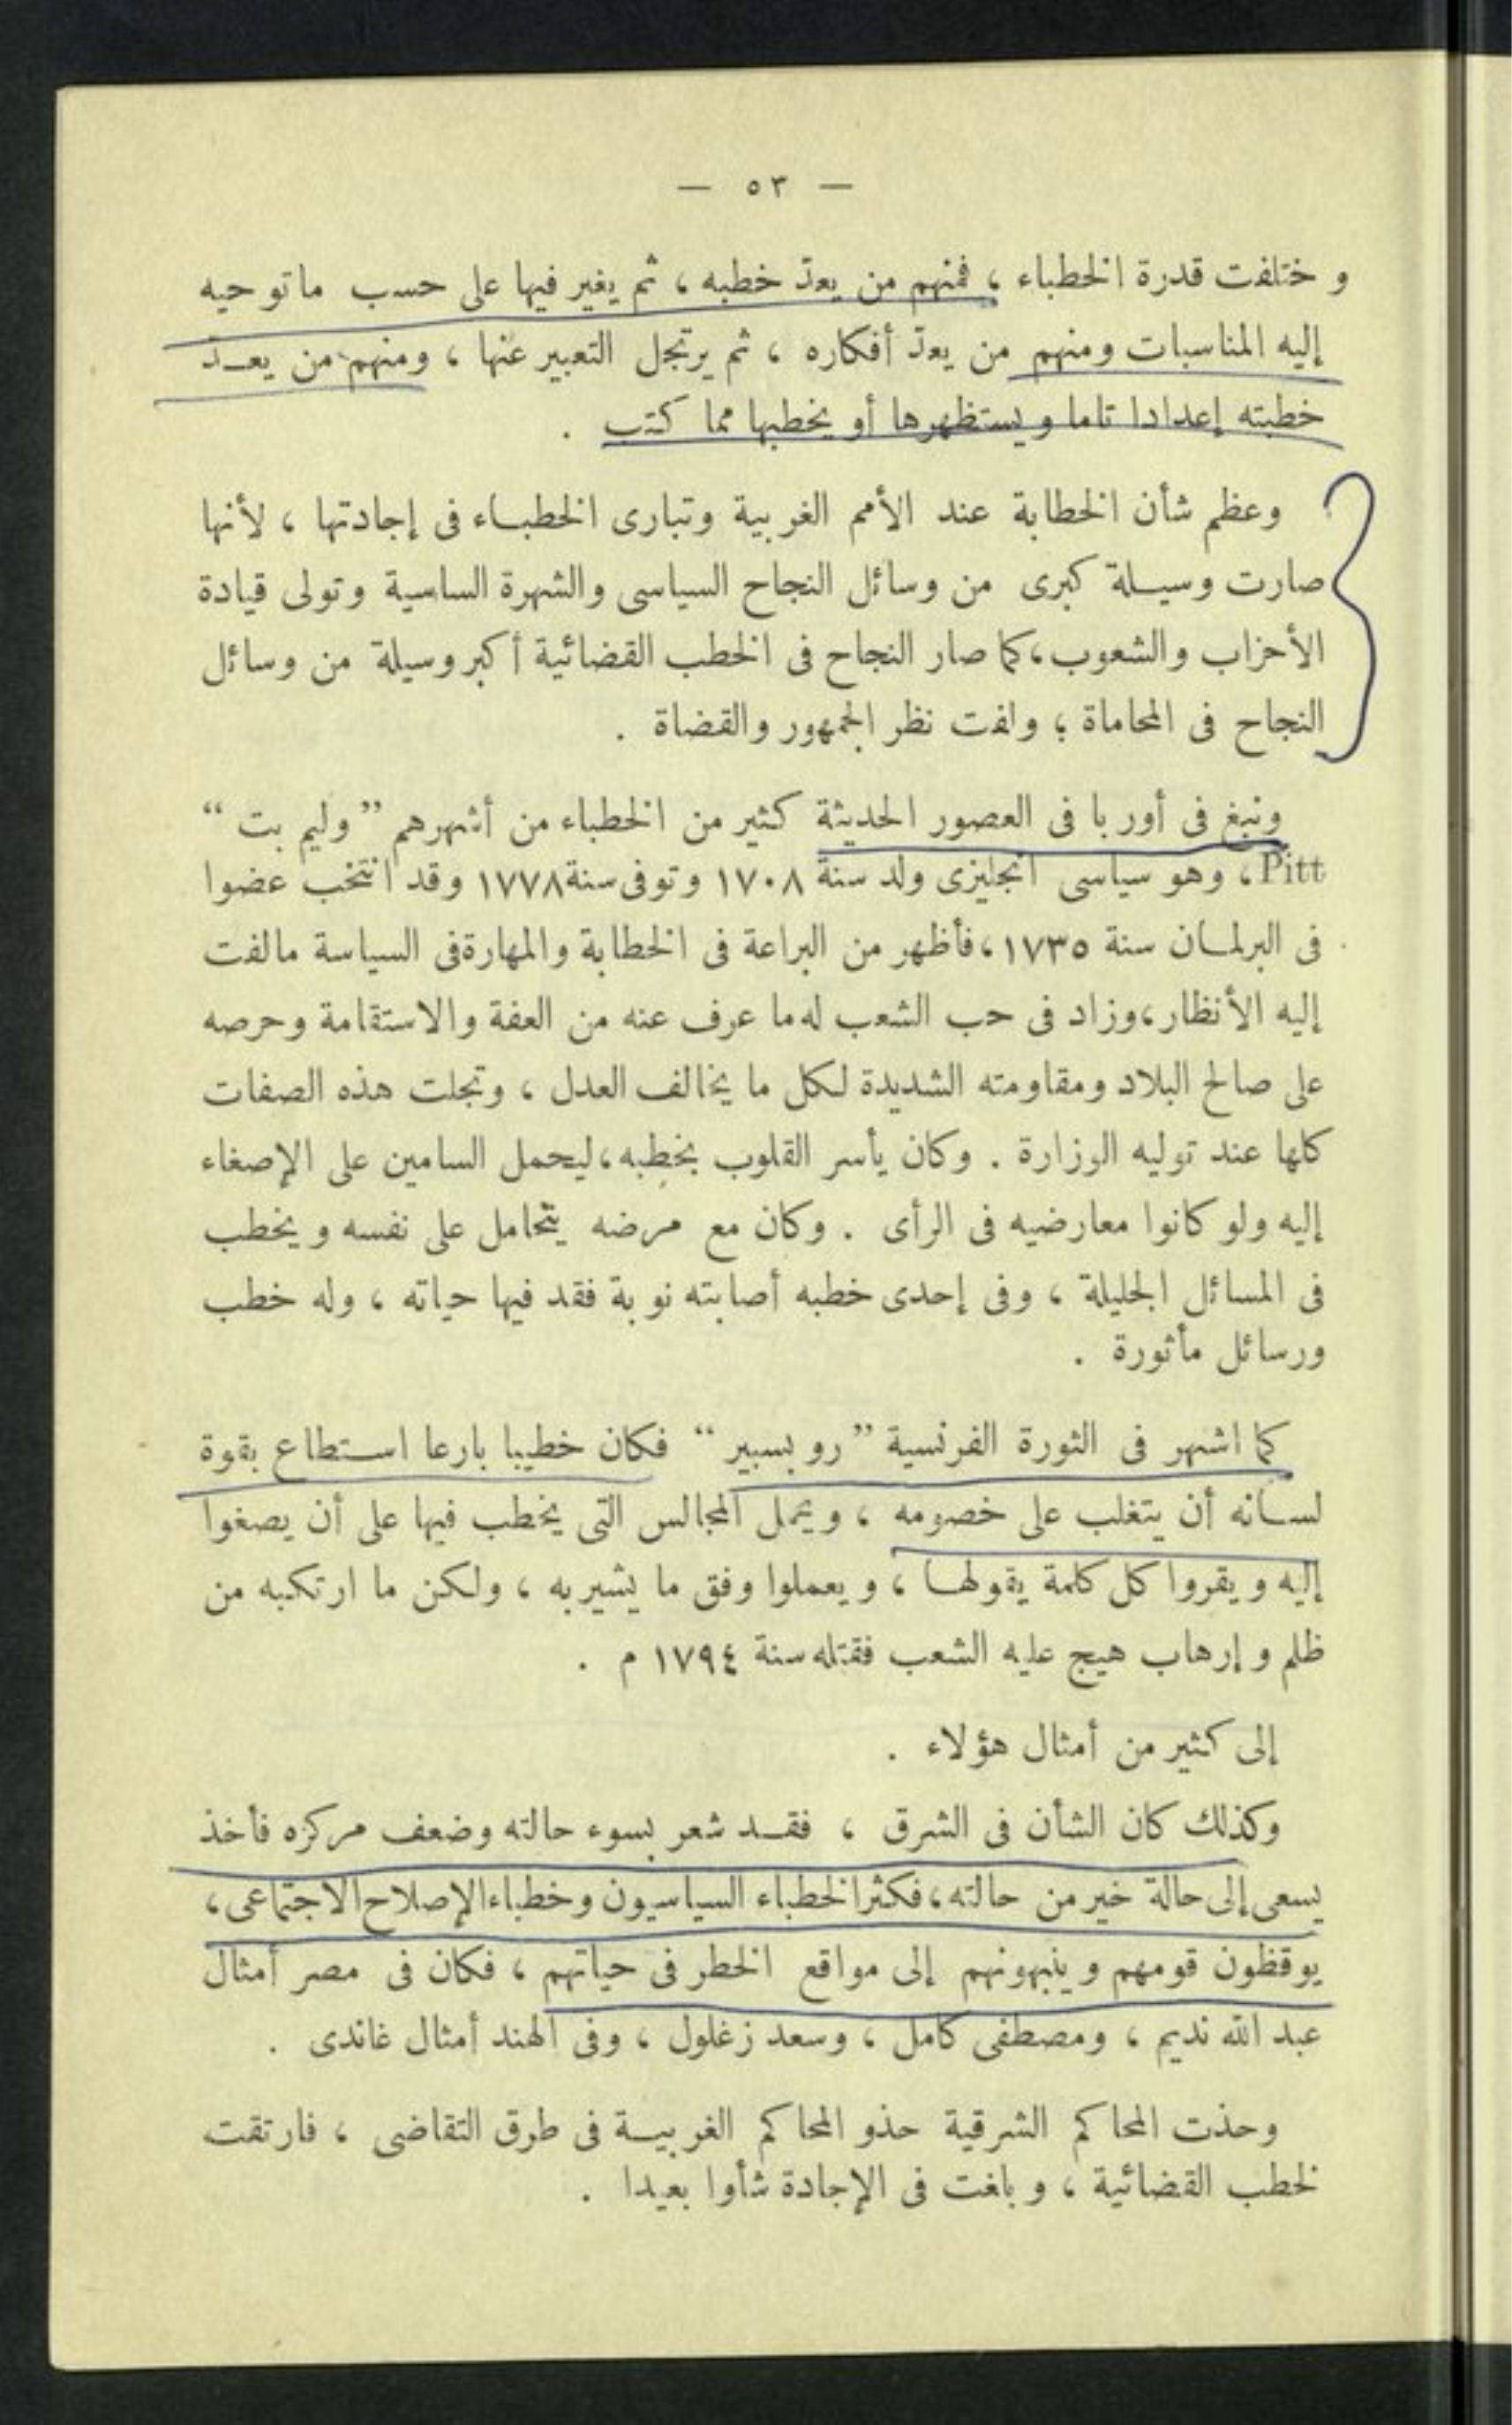 — ٥٣ —
و ختلفت قدرة الخطباء ، فمنهم من يعدّ خطبه ، ثم يغير فيها على حسب ماتوحيه
إليه المناسبات ومنهم من يعدّ أفكاره ، ثم يرتجل التعبير عنها ، ومنهم من يعـدّ
خطبته إعدادا تاما ويستظهرها أو يخطبها مما كتب .
وعظم شأن الخطابة عند الأمم الغربية وتبارى الخطبـاء فى إجادتها ، لأنها
صارت وسيـلة كبرى من وسائل النجاح السياسى والشهرة الساسية وتولى قيادة
الأحزاب والشعوب، كما صار النجاح فى الخطب القضائية أكبر وسيلة من وسائل
النجاح فى المحاماة ؛ ولفت نظر الجمهور والقضاة .
ونبغ فى أوربا فى العصور الحديثة كثير من الخطباء من أشهرهم ”وليم بت“
Pitt، وهو سياسى انجليزى ولد سنة ١٧٠٨ وتوفى سنة ١٧٧٨ وقد انتخب عضوا
فى البرلمـان سنة ١٧٣٥، فأظهر من البراعة فى الخطابة والمهارة فى السياسة مالفت
إليه الأنظار، وزاد فى حب الشعب له ما عرف عنه من العفة والاستقامة وحرصه
على صالح البلاد ومقاومته الشديدة لكل ما يخالف العدل ، وتجلت هذه الصفات
كلها عند توليه الوزارة . وكان يأسر القلوب بخطبه، ليحمل السامين على الإصغاء
إليه ولو كانوا معارضيه فى الرأى . وكان مع مرضه يتحامل على نفسه ويخطب
فى المسائل الجليلة ، وفى إحدى خطبه أصابته نوبة فقد فيها حياته ، وله خطب
ورسائل مأثورة .
كما اشتهر فى الثورة الفرنسية ”روبسبير“ فكان خطيبا بارعا استـطاع بقوة
لسـانه أن يتغلب على خصومه ، ويحمل المجالس التى يخطب فيها على أن يصغوا
إليه ويقروا كل كلمة يقولهـا ، ويعملوا وفق ما يشير به ، ولكن ما ارتكبه من
ظلم وإرهاب هيج عليه الشعب فقتله سنة ١٧٩٤ م .
إلى كثير من أمثال هؤلاء .
وكذلك كان الشأن فى الشرق ، فقـد شعر بسوء حالته وضعف مركزه فأخذ
يسعى إلى حالة خير من حالته، فكثر الخطباء السياسيون وخطباء الإصلاح الاجتماعى،
يوقظون قومهم وينبهونهم إلى مواقع الخطر فى حياتهم ، فكان فى مصر أمثال
عبد الله نديم ، ومصطفى كامل ، وسعد زغلول ، وفى الهند أمثال غاندى .
وحذت المحاكم الشرقية حذو المحاكم الغربيـة فى طرق التقاضى ، فارتقت
لخطب القضائية ، وبلغت فى الإجادة شأوا بعيدا .